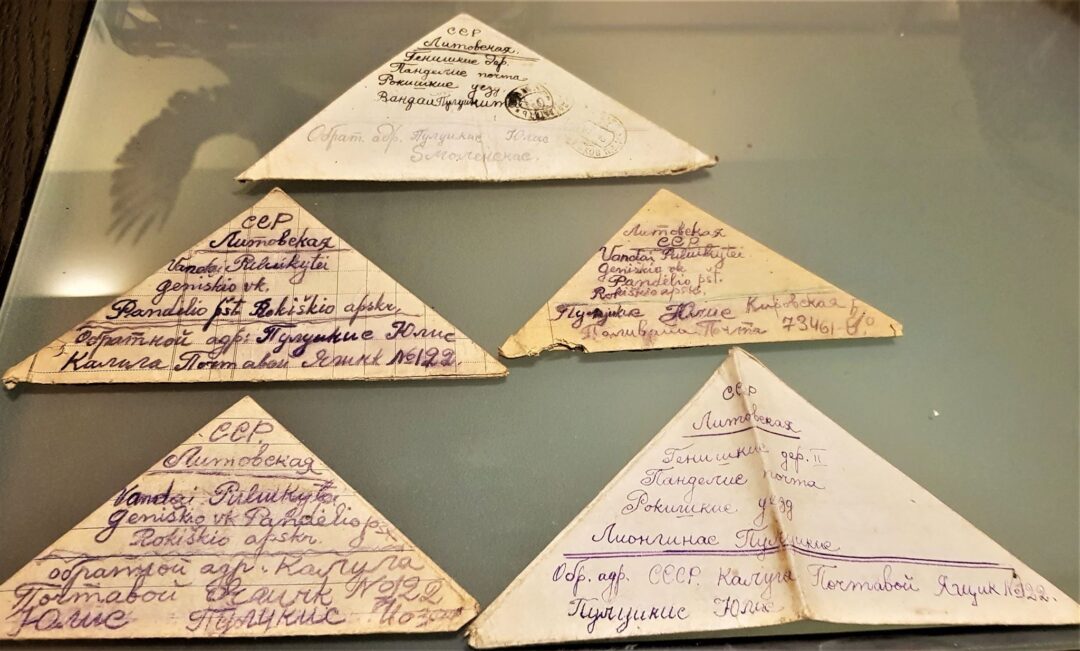 ССР
Литовская
Генишкие дер.
Панделие почта
Рокишкие уезд
Вандаи
Обрат. адр. Пулуикис Юлис
ССР
Литовская
Vandai Pulnikytei
geniskio vk.
Pandėlio pšt. Rokiškio apskr.
обратной адр: Пулуикис Юлис
Калуга Почтавой Ящик №122
Литовская
ССР
Vandai Pulnikytei
geniskio vk.
Pandėlio pšt.
Rokiškio apskr.
Юлис
Почта 73461-
ССР.
Литовская
Vandai Pulnikytei
geniskio vk Pandėlio
Rokiškio apskr.
обратной адр: Калуга
Почтавой №122
Юлис Пулуикис
ССР
Литовская
Генишкие дер. II
Панделие почта
Рокишкие уезд
Лионгинас Пулуикис
Обр. адр. СССР. Калуга Почтавой Ящик №122.
Пулуикис Юлис